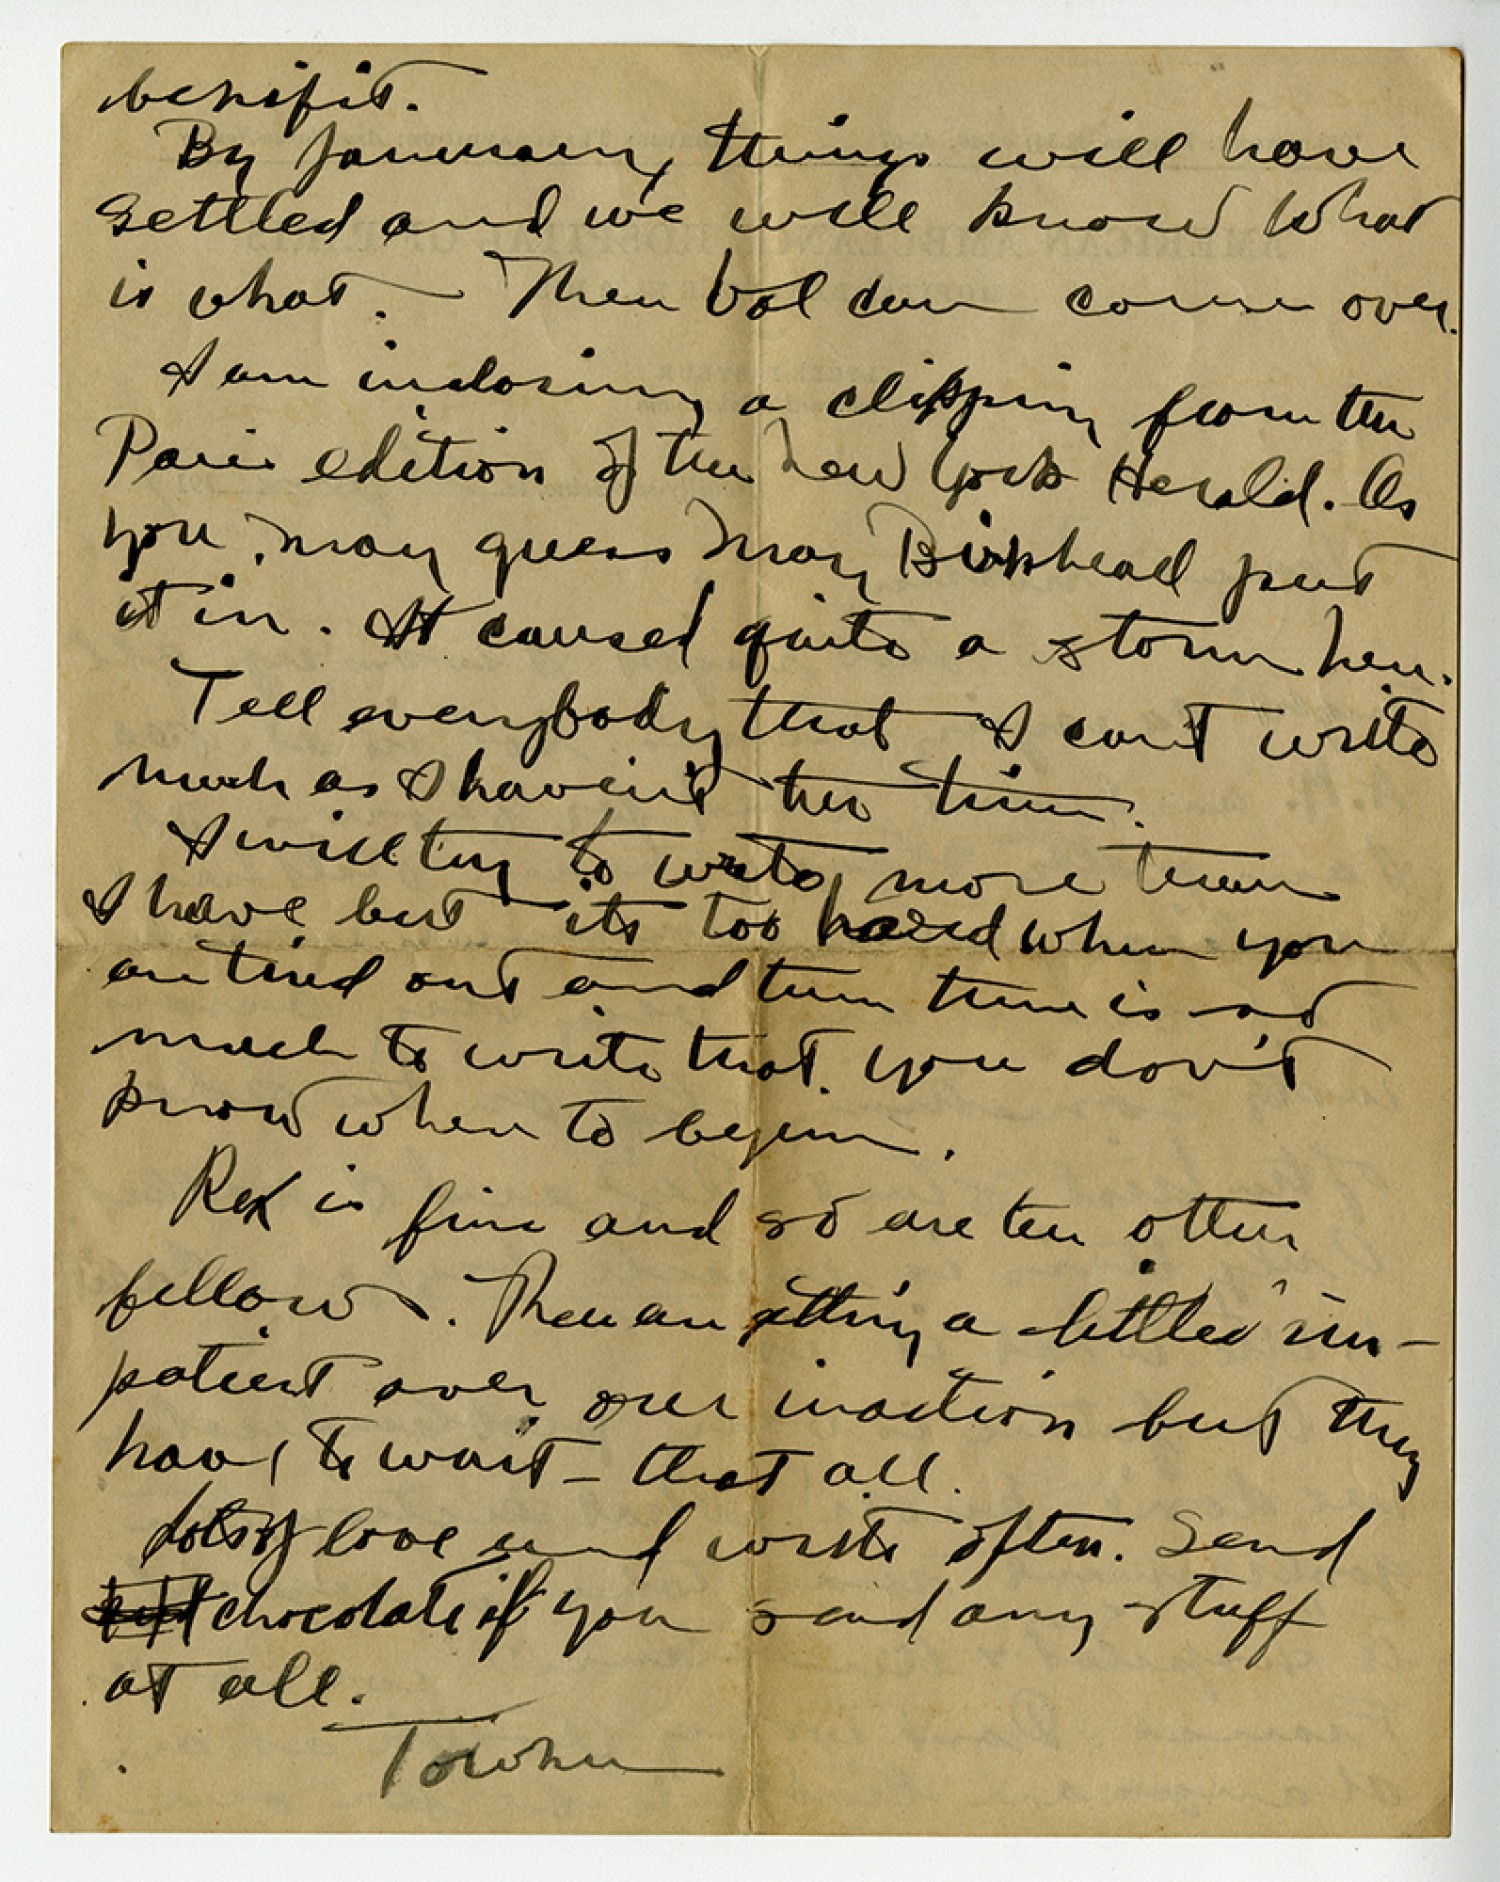 benifit.
By January, things will have
settled and we will know what
is what. – Then Val can come over.
I am inclosing a clipping from the
Paris edition of the New York Herald. As
you may guess May Birkhead put
it in. It caused quite a storm here.
Tell everybody that I can't write
much as I haven't the time.
I will try to write more than
I have but its too hard when you
are tired out and then there is so
much to write that you don't
know when to begin.
Rex is fine and so are the other
fellows. They are getting a little im-
patient over our inaction but they
have to wait – that all.
Lots of love and write often. Send
chocolate if you send any stuff
at all.